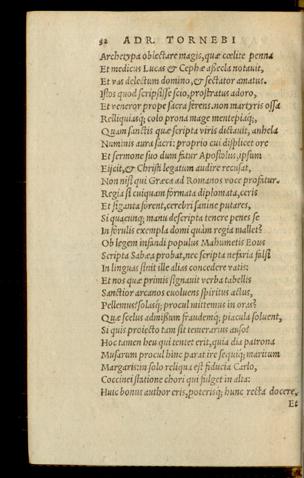 92 ADR. TORNEBI
Archetypa oblectare magis, quæ cœlite penna
Et medicus Lucas & Cephæ aßecla notauit,
Et vas delectum domino, & sectator amatus.
Istos quod scripsisse scio, prostratus adoro,
Et veneror prope sacra ferens non martyris ossa
Relliquiasq; colo prona mage mente piaq;,
Quam sanctis quæ scripta viris dictauit, anhela
Numinis aura sacri: proprio cui displicet ore
Et sermone suo dum fatur Apostolus, ipsum
Eijcit, & Christi legatum audire recusat,
Non nisi qui Græca ad Romanos voce profatur.
Regia si cuiquam formata diplomata, ceris
Et signata forent, cerebri sanine putares,
Si quæcunq; manu descripta tenere penes se
In forulis exempla domi quàm regia mallet?
Ob legem infandi populus Mahumetis Eous
Scripta Sabæa probat, nec scripta nefaria falsi
In linguas sinit ille alias concedere vatis:
Et nos quæ primis signauit verba tabellis
Sanctior arcanos euoluens spiritus actus,
Pellemus? solasq; procul mittemus in oras?
Quæ scelus admißum fraudemq; piacula soluent,
Si quis proiecto tam sit temerarius auso?
Hoc tamen heu qui tentet erit, quia dia patrona
Musarum procul hinc parat ire sequiq; maritum
Margaris: in solo reliqua est fiducia Carlo,
Coccinei statione chori qui fulget in alta:
Huic bonus author eris, poterisq; hunc recta docere,
Et